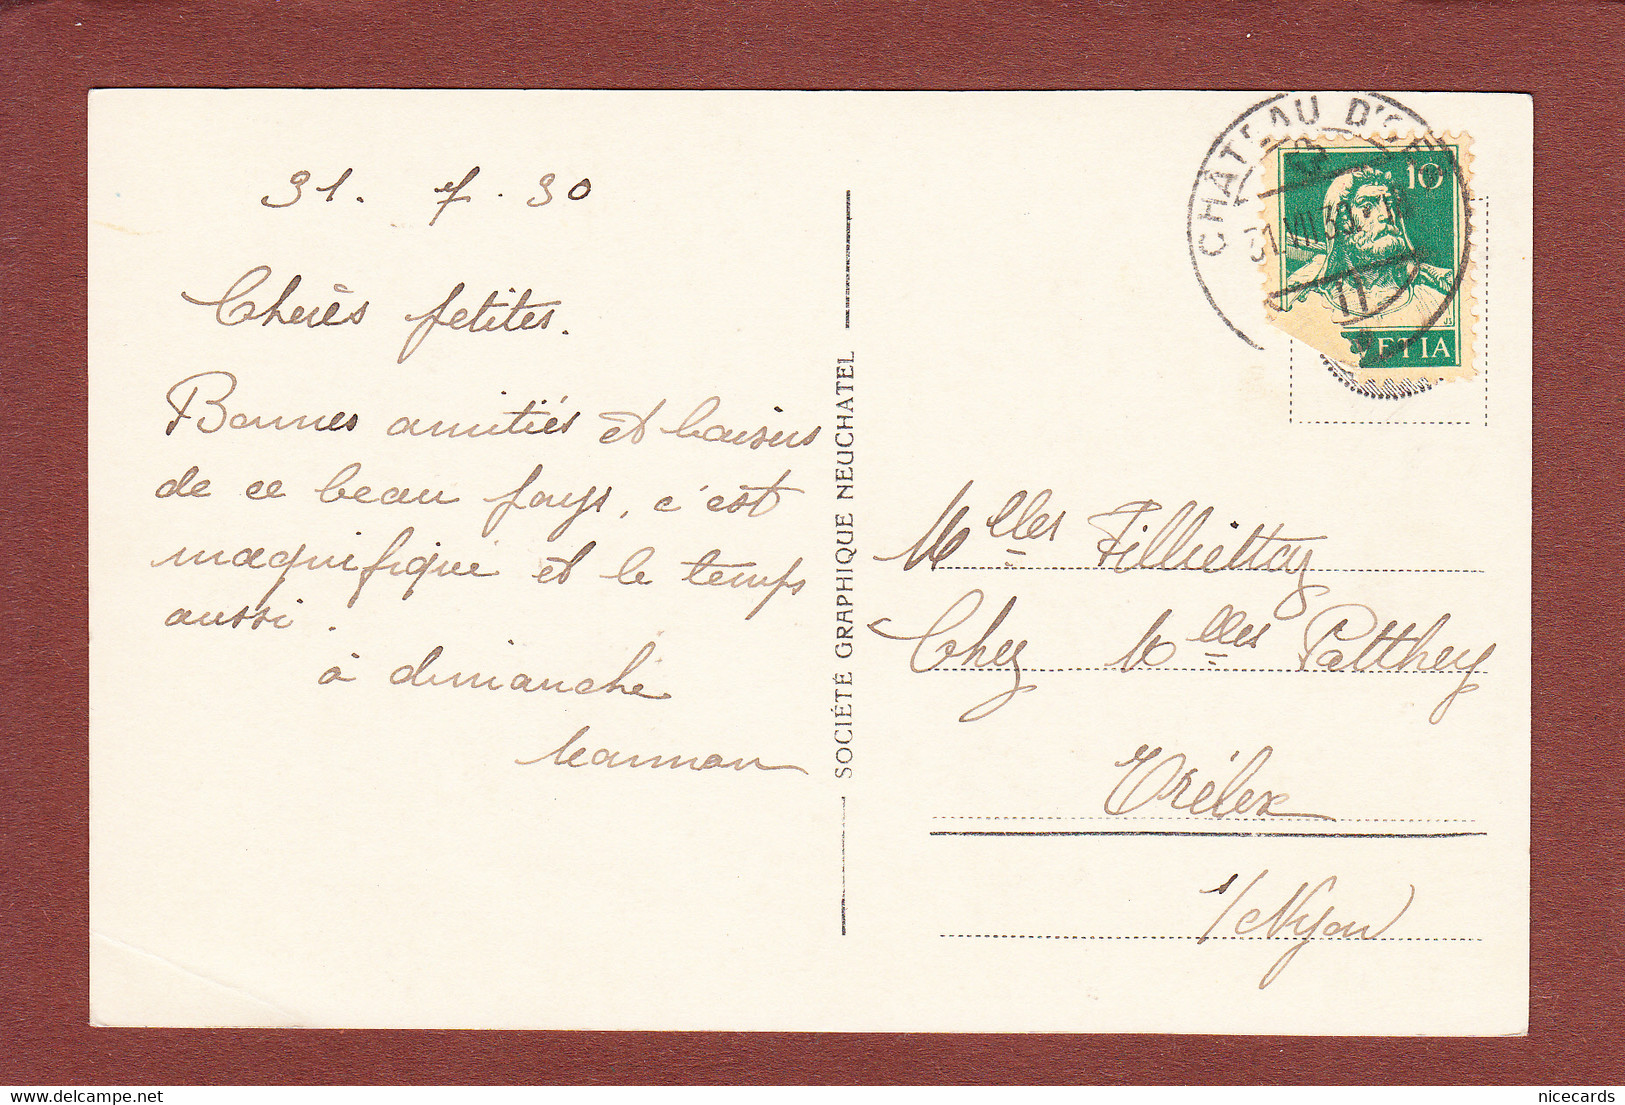 31. 7. 30
Cherès petites.
Bonnes amitiés et baisers
de ce beau pays, c'est
magnifique et le temps
aussi.
à dimanche
SOCIÉTÉ GRAPHIQUE NEUCHATEL
CHÂTEAU D'ŒX
31.VII.30
10
VETIA
Mlles Filliettaz
Chez Mlles Patthey
Trélex
s/Nyon
delcampe.net
nicecards